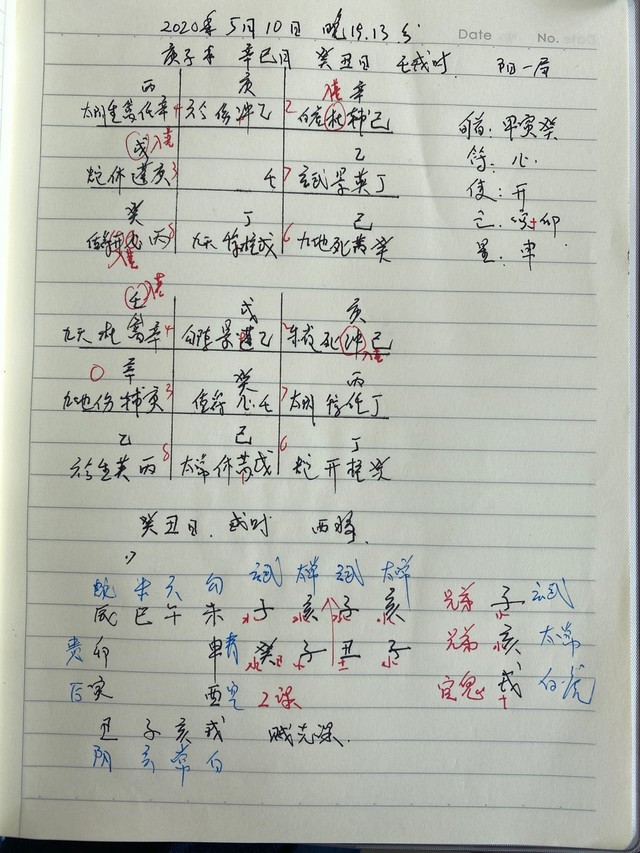 Date No.
2020年5月10日 晚19.13分
庚子年 辛巳月 癸丑日 壬戌时. 阳一局
丙 庚 入墓 辛
太阴生 任辛 4 六合伤冲乙 2 白虎杜辅己 旬首:甲寅癸
戊 入墓 乙 符:心.
蛇休蓬庚 3 壬 7 玄武景英丁 使:开
癸 丁 己
丙 8 九天 柱戊 6 九地死芮癸
壬 入墓 戊 庚
九天杜 辛 4 景蓬乙 2 朱雀死冲己 入墓
辛 癸 丙
九地伤辅庚 3 值符心壬 7 太阴 任丁
乙 己 丁
六合生英丙 8 太常休芮戊 6 蛇开柱癸
癸丑日. 戌时 酉将.
蛇 朱 六 勾 玄武 太常 玄武 太常
辰 巳 午 未 子 亥 子 亥 兄弟 子 玄武
贵 卯 申 青 癸 子 丑 子 兄弟 亥 太常
后 寅 酉 空 2课 官鬼 戌 白虎
丑 子 亥 戌 贼克课.
阴 玄 常 白